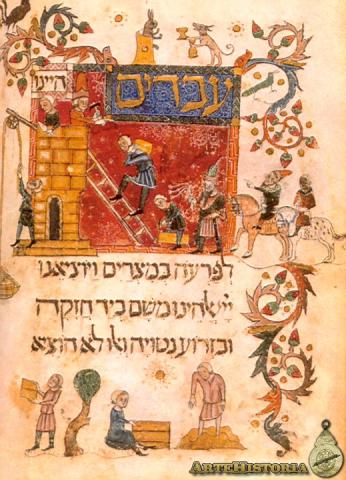 עבדים היינו
לפרעה במצרים ויוציאנו
יי אלהינו משם ביד חזקה
ובזרוע נטויה ואלו לא הוציא
ARTEHISTORIA